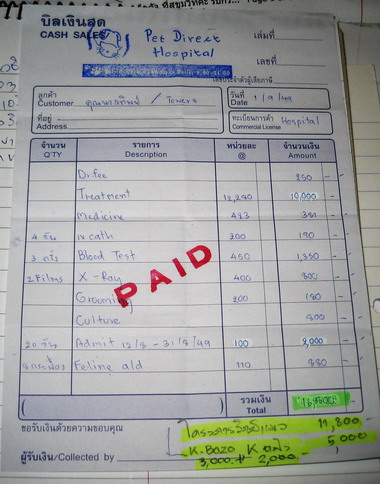 บิลเงินสด
CASH SALES
Pet Direct
Hospital
เล่มที่
เลขที่
เลขประจำตัวผู้เสียภาษี
ลูกค้า
Customer / Towers
วันที่
Date 1/9/49
ที่อยู่
Address
ทะเบียนการค้า Hospital
Commercial License
จำนวน รายการ หน่วยละ จำนวนเงิน
QTY Description @ Amount
Dr.fee 250 -
Treatment 12,280 10,000
Medicine 423 381
4 IV cath 200 190
3 Blood Test 450 1,350
2 Films X-Ray 400 800
Grooming 200 180
Culture 800
20 วัน Admit 12/8 - 31/8/49 100 2,000
Feline aid 110 880
PAID
รวมเงิน
Total
ขอรับเงินด้วยความขอบคุณ
11,800-
K. Bazo K 5,000
3,000 + 2,000-
ผู้รับเงิน/Collected by